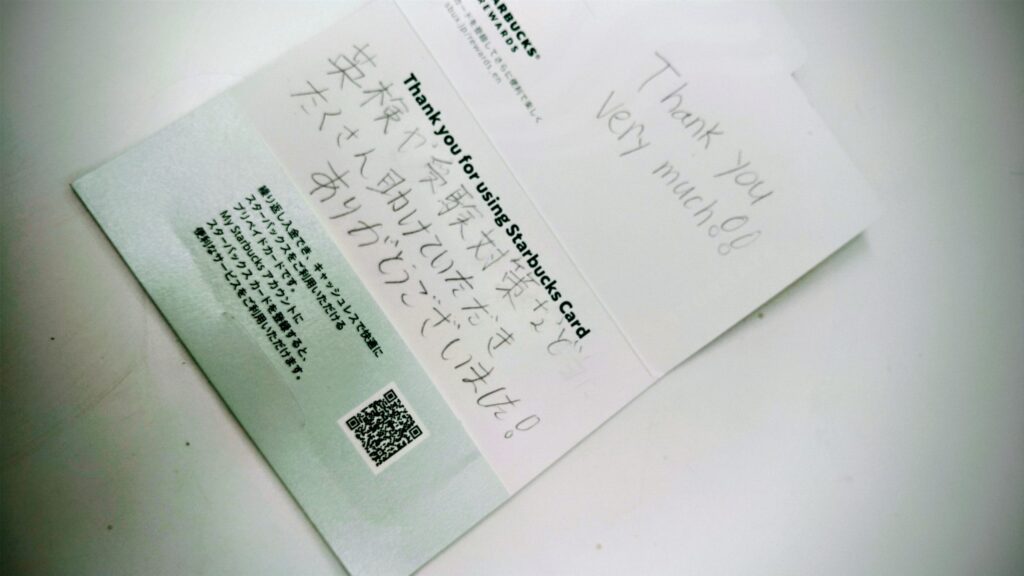 ARBUCKS®
REWARDS
カードを登録してさらに便利で楽しく
Thank you
very much!!
Thank you for using Starbucks Card
英検や受験対策など
たくさん助けていただき
ありがとうございました!
繰り返し入金でき、キャッシュレスで快適に
スターバックスをご利用いただける
プリペイドカードです。
My Starbucks アカウントに
スターバックス カードを登録すると、
便利なサービスをご利用いただけます。